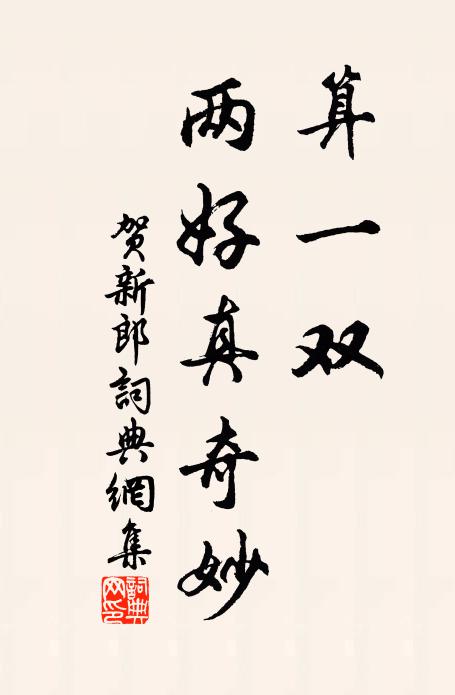 算一双
两好真奇妙
贺新郎詞典網集
詞典
网印